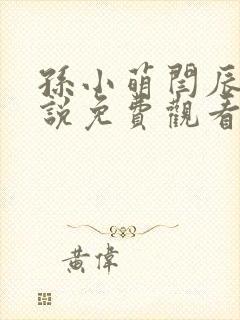 孫小萌閆辰
說免費觀看
黃偉